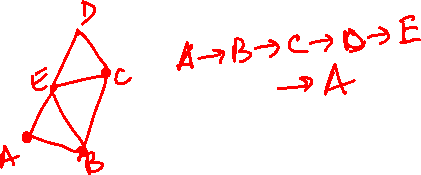 D
E
C
A
B
A→B→C→D→E
→A